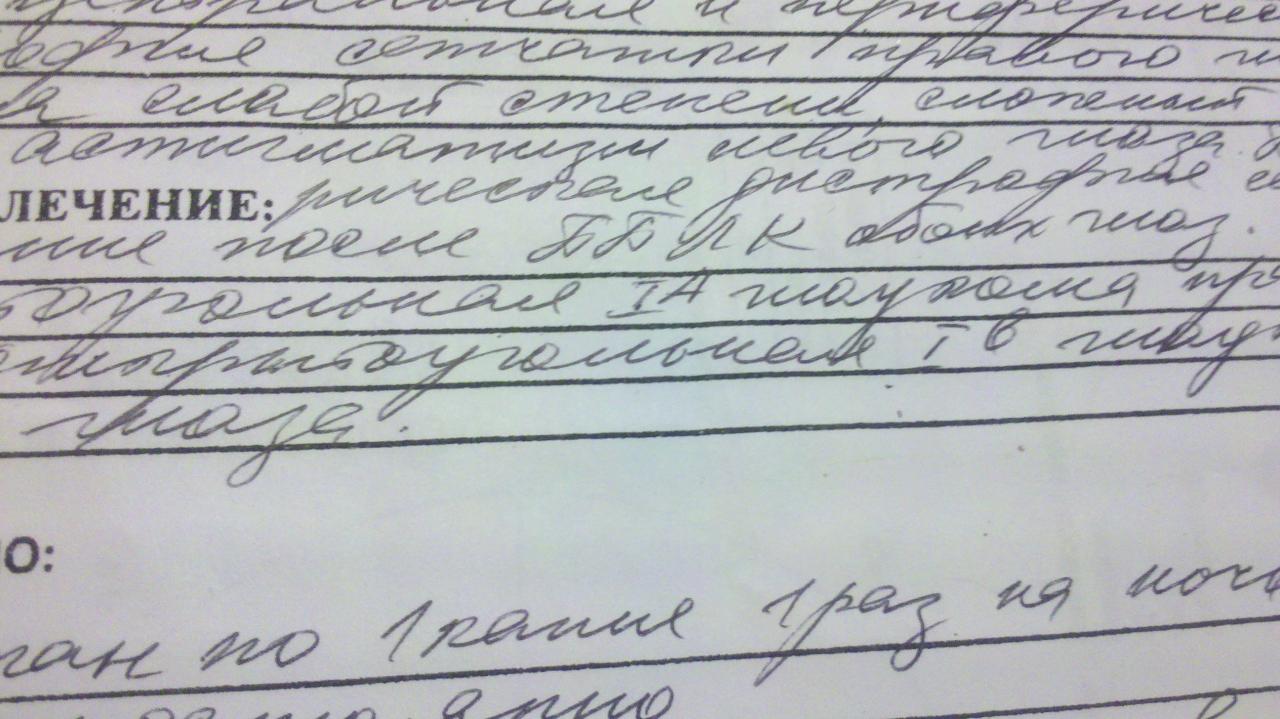 центральная и перифериче
офия сетчатки правого гл
я слабой степени, сложный
астигматизм левого глаза.
ЛЕЧЕНИЕ: рическая дистрофия се
ние после ППЛК обоих глаз.
тоугольная IA глаукома пра
открытоугольная I в глау
глаза.
НО:
тан по 1 капле 1 раз на ночь